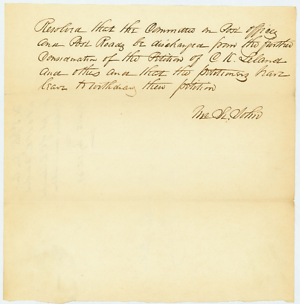 Resolved that the Committee on Post offices
and Post Roads be discharged from the further
Consideration of the Petition of C K. Leland
and others and that the petitioners have
leave to withdraw their petition
Mr St. John